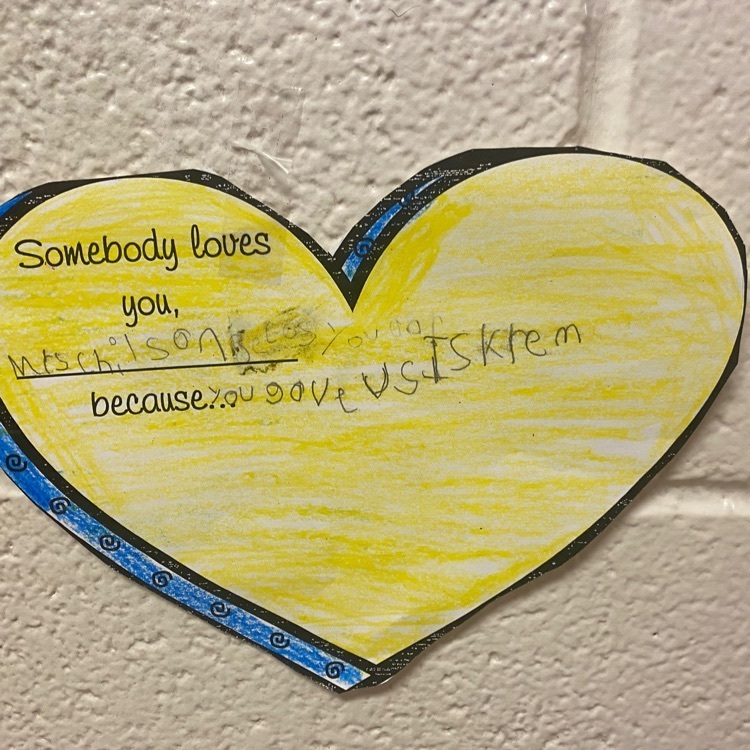 Somebody loves
you,
Mrschilson
because... you gave us Iskrem